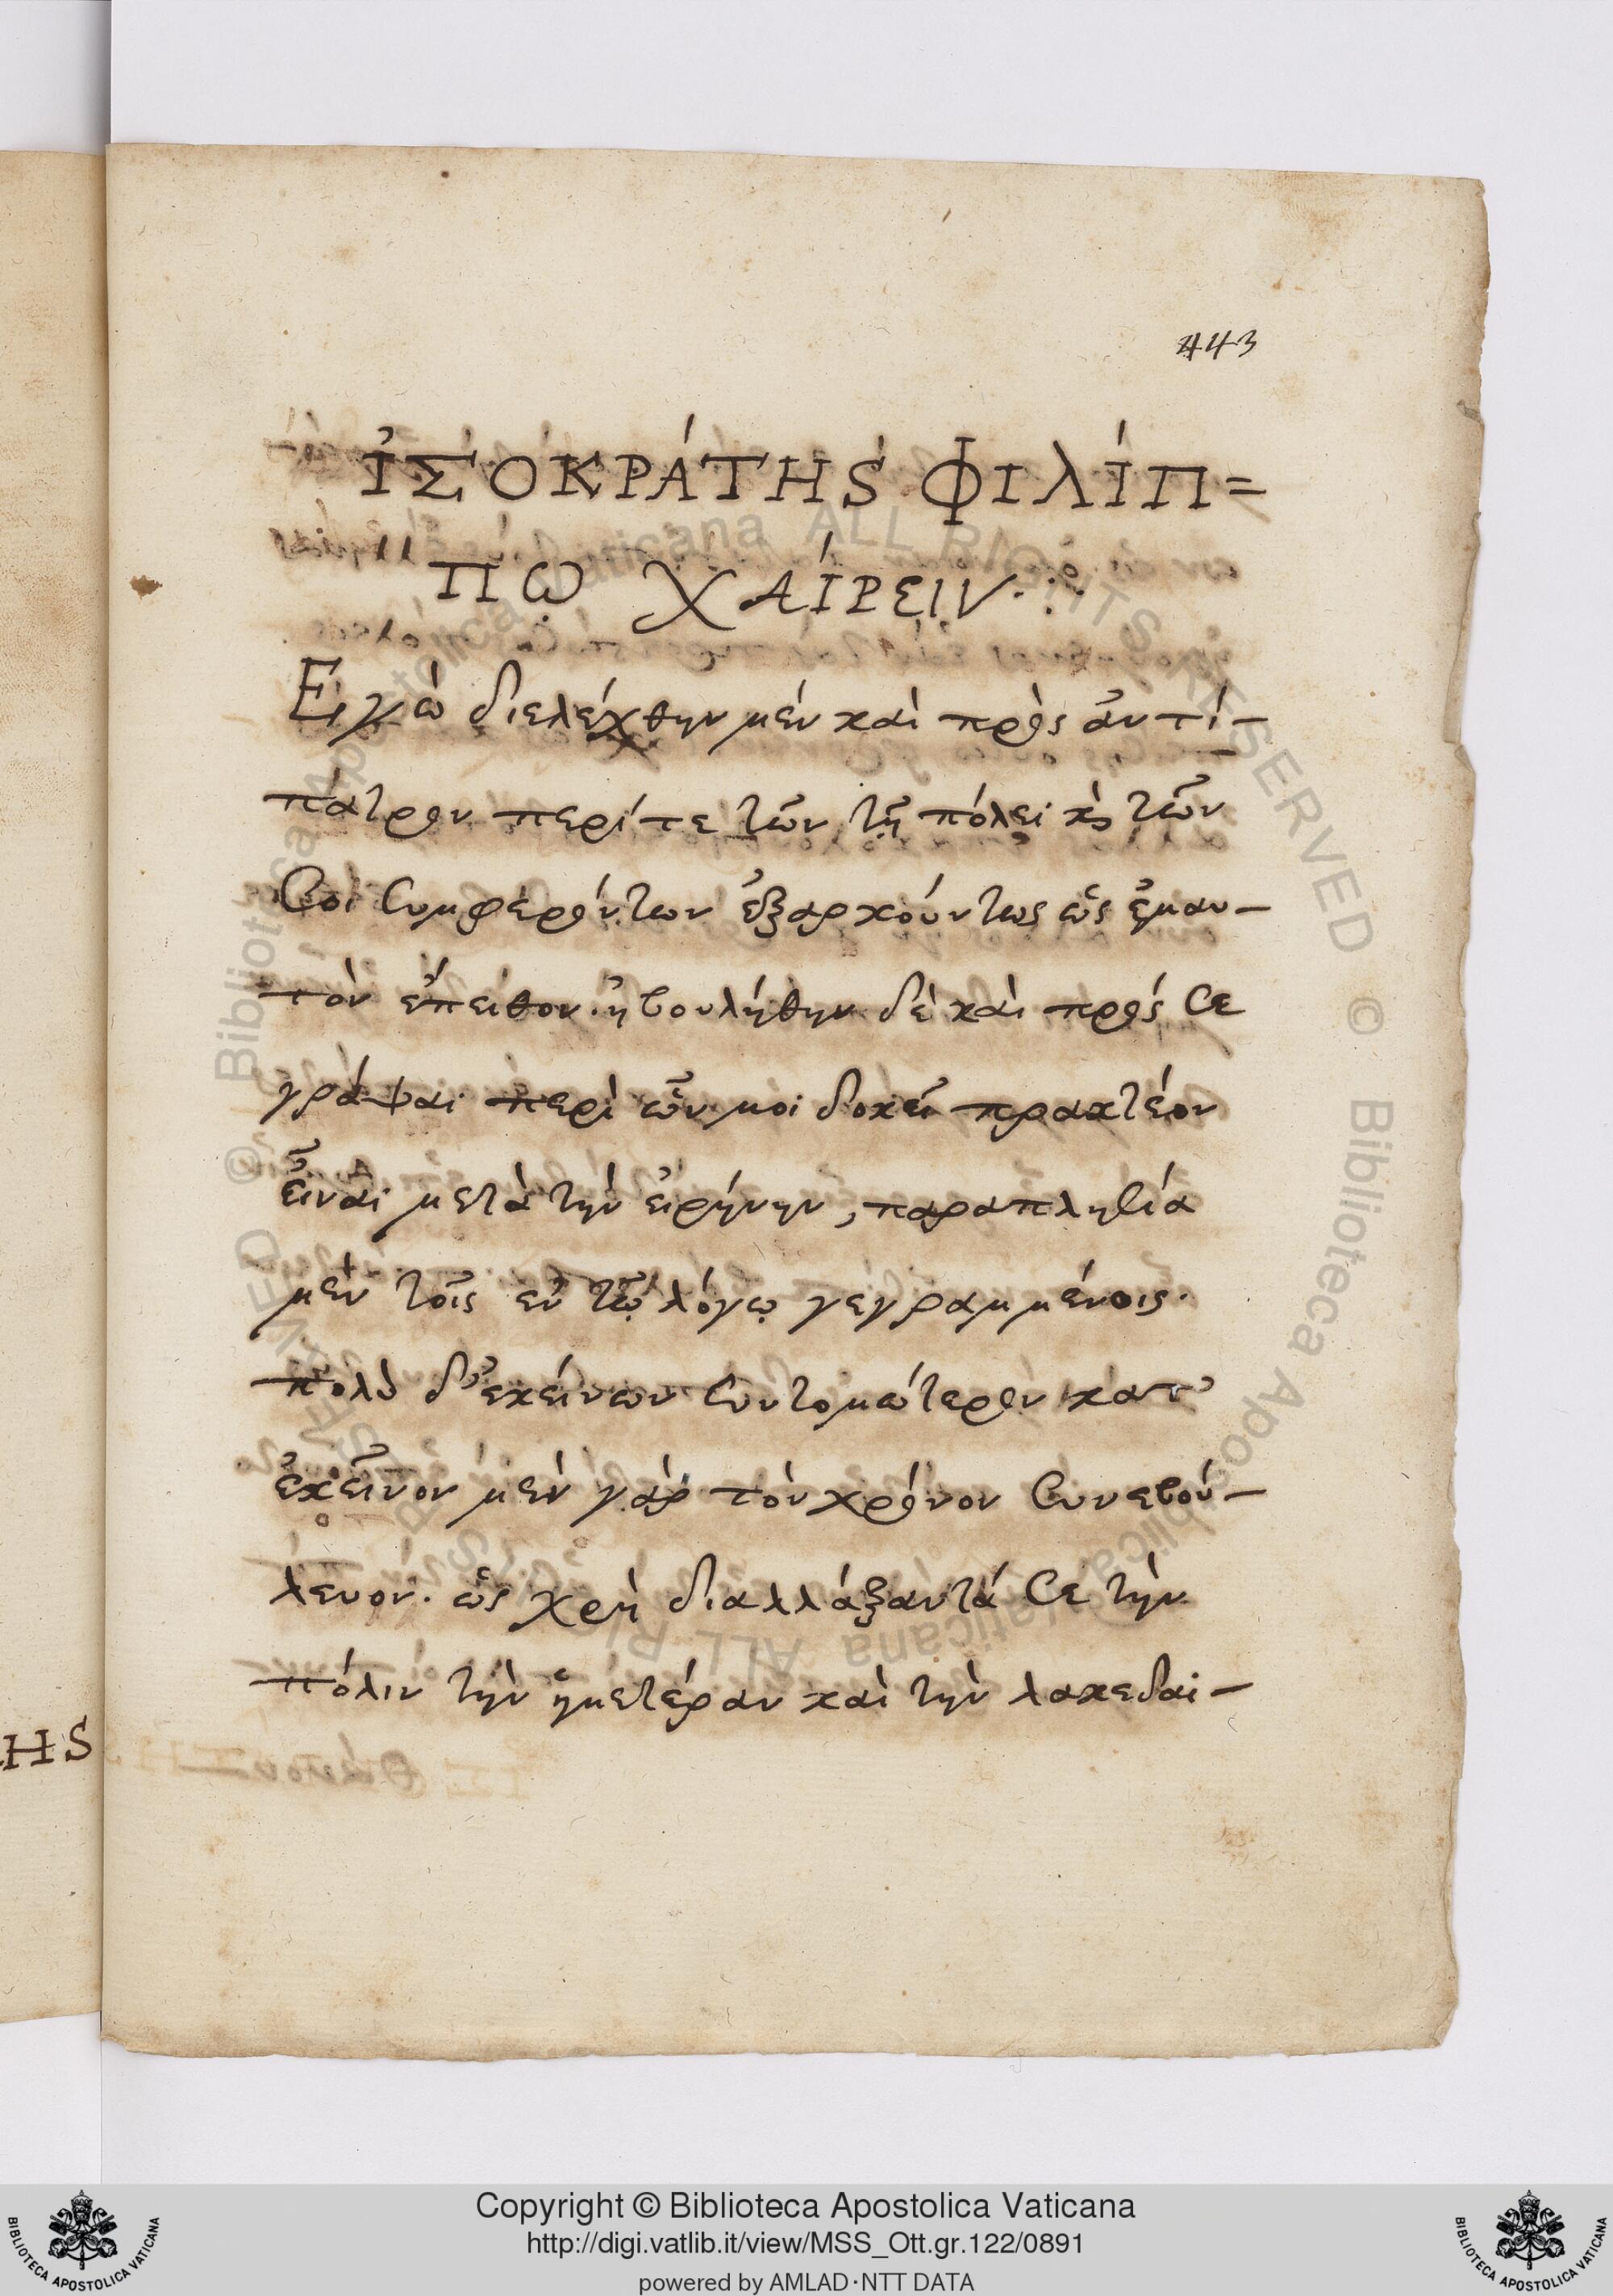 443
ἸΣΟΚΡΆΤΗS ΦΙΛΊΠ=
ΠΩ ΧΑΊΡΕΙΝ·:
Εγὼ διελέχθην μὲν καὶ πρὸς ἀντί-
πατρον περί τε τῶν τῆ πόλει κὶ τῶν
σοὶ συμφερόντων ἐξαρκούντως ὡς ἐμαυ-
τὸν ἔπειθον. ἠβουλήθην δὲ καὶ πρός σε
γράψαι περὶ ὧν μοι δοκεῖ πρακτέον
εἶναι μετὰ τὴν εἰρήνην, παραπλησία
μὲν τοῖς ἐν τῷ λόγῳ γεγραμμένοις.
πολὺ δ' ἐκείνων συντομώτερον κατ'
ἐκεῖνον μὲν γὰρ τὸν χρόνον συνεβού-
λευον. ὡς χρὴ διαλλάξαντά σε τὴν
πόλιν τὴν ἡμετέραν καὶ τὴν λακεδαι-
ΗS
© Biblioteca Apostolica Vaticana ALL RIGHTS RESERVED © Biblioteca Apostolica Vaticana ALL RIGHTS RESERVED
Copyright © Biblioteca Apostolica Vaticana
http://digi.vatlib.it/view/MSS_Ott.gr.122/0891
powered by AMLAD·NTT DATA
BIBLIOTECA APOSTOLICA VATICANA
BIBLIOTECA APOSTOLICA VATICANA